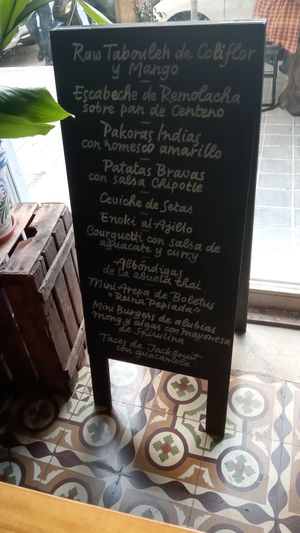 Raw Tabouleh de Coliflor
y Mango
Escabeche de Remolacha
sobre pan de Centeno
Pakoras Indias
con romesco amarillo
Patatas Bravas
con salsa Chipotle
Ceviche de Setas
Enoki al Ajielo
Courguetti con salsa de
aguacate y curry
Albóndigas
de la abuela thai
Mini Arepa de Boletus
"Reina Pepiada"
Mini Burgers de alubias
mong y algas con mayonesa
de Spirulina
Tacos de Jackfruit
con guacamole